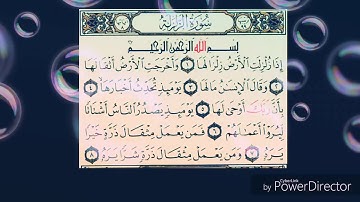 سُورَةُ الزَّلْزَلَةِ
بِسْمِ اللَّهِ الرَّحْمَٰنِ الرَّحِيمِ
إِذَا زُلْزِلَتِ الْأَرْضُ زِلْزَالَهَا ١ وَأَخْرَجَتِ الْأَرْضُ أَثْقَالَهَا
٢ وَقَالَ الْإِنسَانُ مَا لَهَا ٣ يَوْمَئِذٍ تُحَدِّثُ أَخْبَارَهَا ٤
بِأَنَّ رَبَّكَ أَوْحَىٰ لَهَا ٥ يَوْمَئِذٍ يَصْدُرُ النَّاسُ أَشْتَاتًا
لِّيُرَوْا أَعْمَالَهُمْ ٦ فَمَن يَعْمَلْ مِثْقَالَ ذَرَّةٍ خَيْرًا
يَرَهُ ٧ وَمَن يَعْمَلْ مِثْقَالَ ذَرَّةٍ شَرًّا يَرَهُ ٨
CyberLink
by PowerDirector